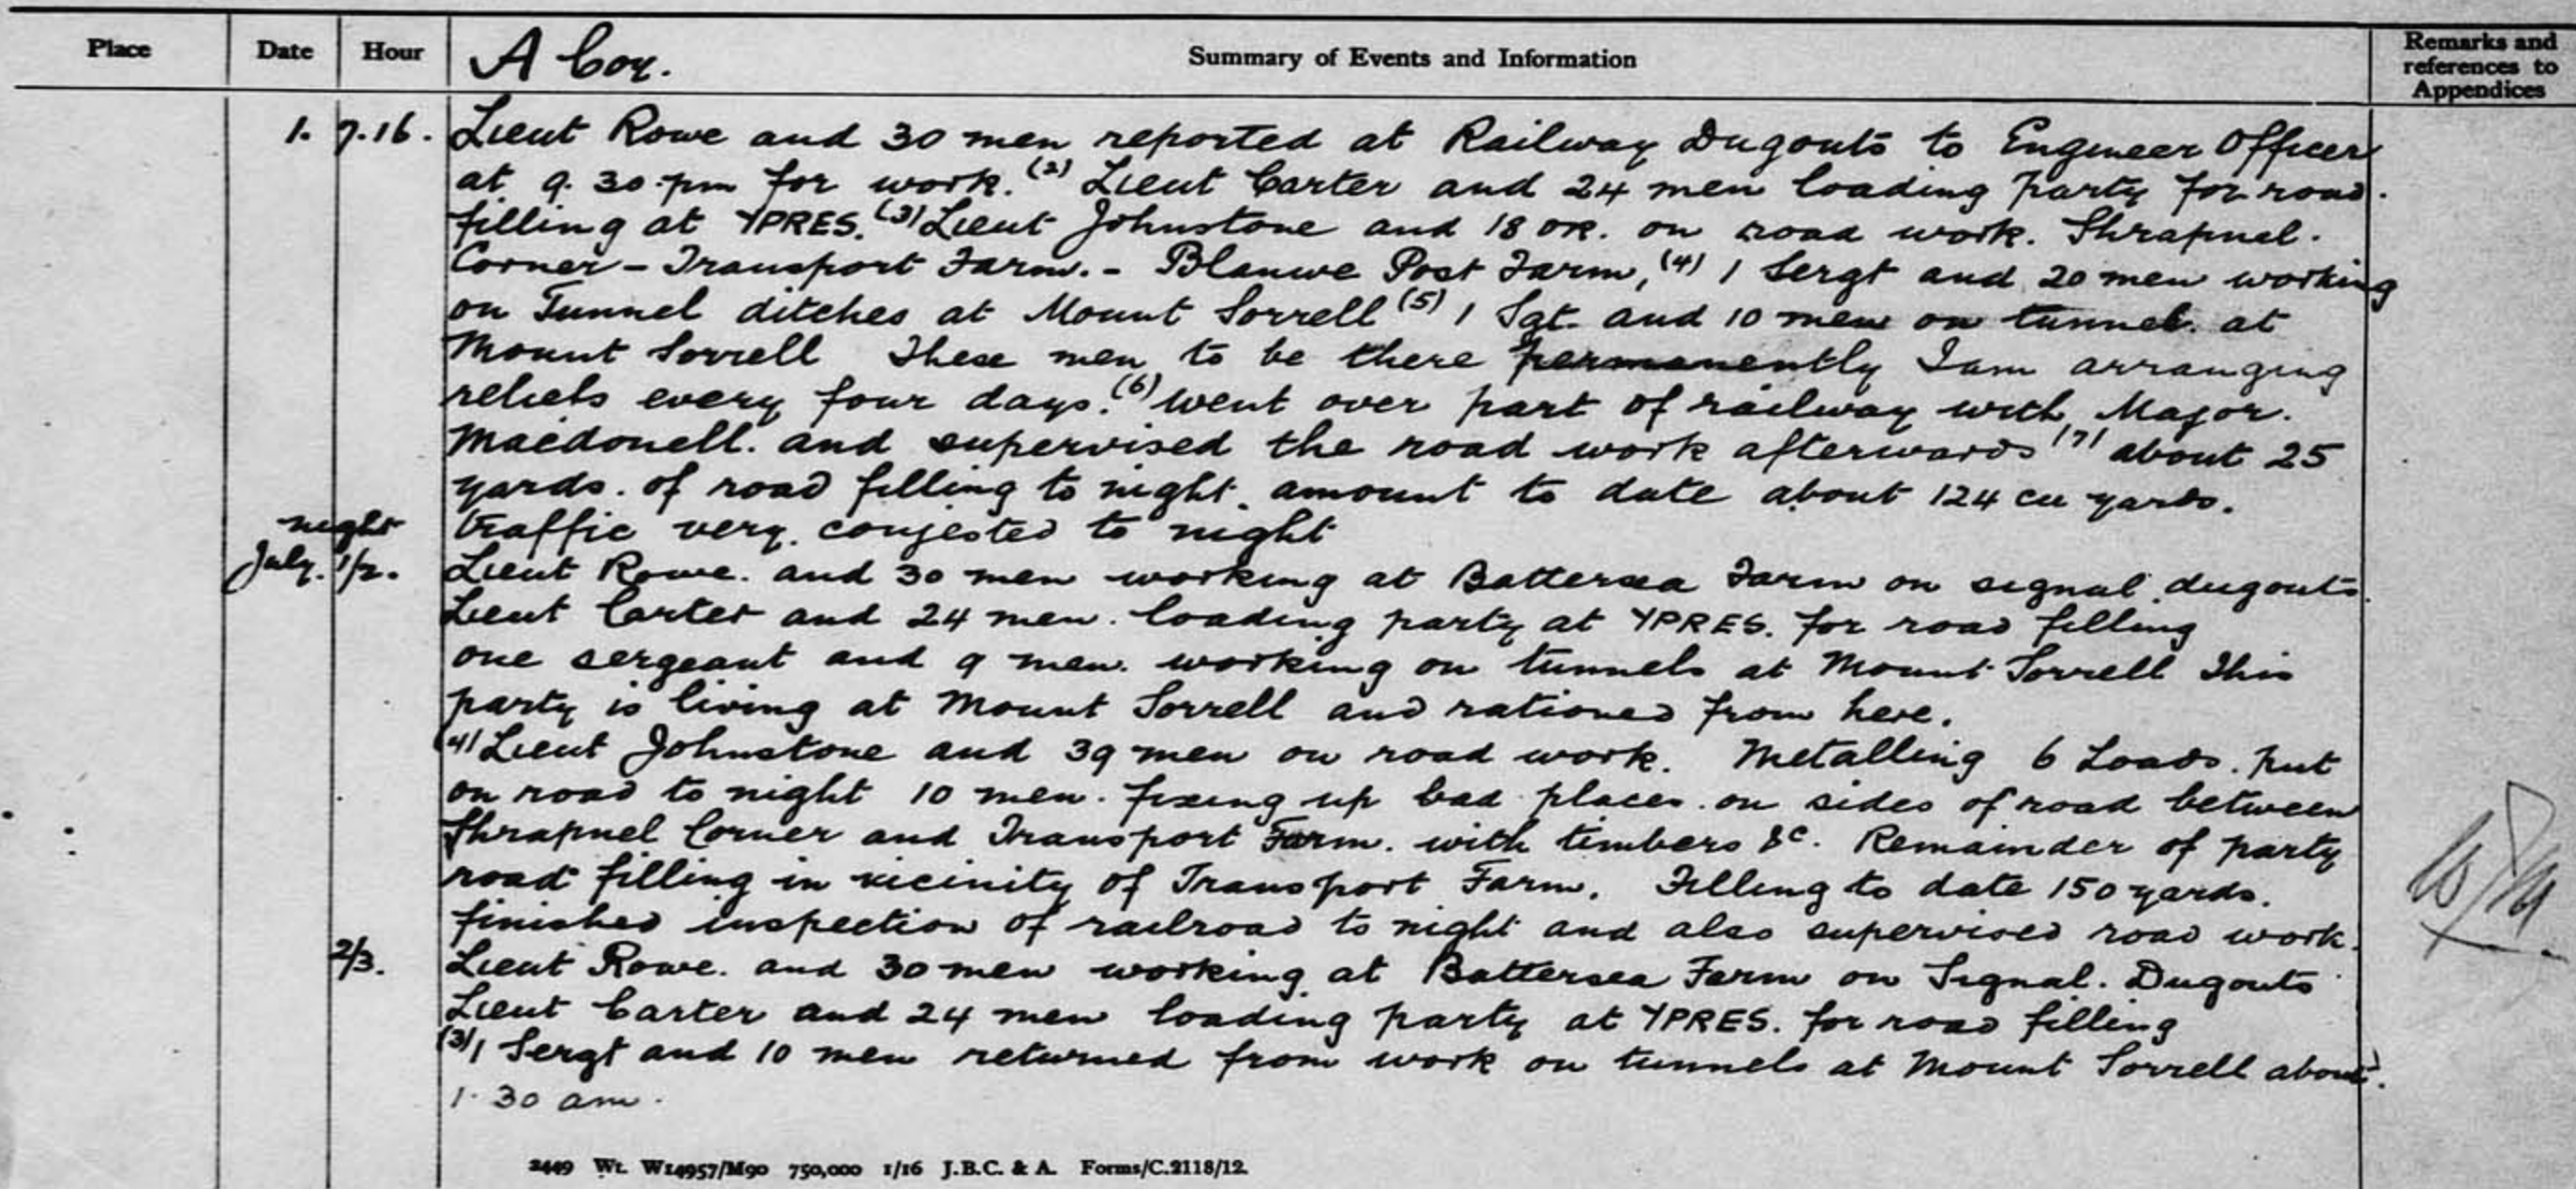 Place Date Hour A Coy. Summary of Events and Information Remarks and references to Appendices
1. 7.16. Lieut Rowe and 30 men reported at Railway Dugouts to Engineer Officer
at 9.30.pm for work. (2) Lieut Carter and 24 men loading party for road.
filling at YPRES. (3) Lieut Johnstone and 18 OR. on road work. Shrapnel.
Corner - Transport Farm. - Blauwe Post Farm, (4) 1 Sergt and 20 men working
on Tunnel ditches at Mount Sorrell (5) 1 Sgt. and 10 men on tunnel. at
Mount Sorrell These men to be there permanently I am arranging
reliefs every four days. (6) went over part of railway with Major.
Macdonell. and supervised the road work afterwards (7) about 25
yards. of road filling to night. amount to date about 124 cu yards.
night traffic very. conjested to night
July. 1/2. Lieut Rowe. and 30 men working at Battersea Farm on signal dugouts.
Lieut Carter and 24 men. loading party at YPRES. for road filling
one sergeant and 9 men. working on tunnels at Mount Sorrell This
party is living at Mount Sorrell and rationed from here.
(4) Lieut Johnstone and 39 men on road work. Metalling 6 Loads. put
on road to night 10 men. fixing up bad places. on sides of road between
Shrapnel Corner and Transport Farm. with timbers &c. Remainder of party
road filling in vicinity of Transport Farm. Filling to date 150 yards.
finished inspection of railroad to night and also supervised road work.
2/3. Lieut Rowe. and 30 men working at Battersea Farm on Signal. Dugouts
Lieut Carter and 24 men loading party at YPRES. for road filling
(3) 1 Sergt and 10 men returned from work on tunnels at Mount Sorrell about.
1.30 am.
2449 Wt. W14957/M90 750,000 1/16 J.B.C. & A. Forms/C.2118/12.